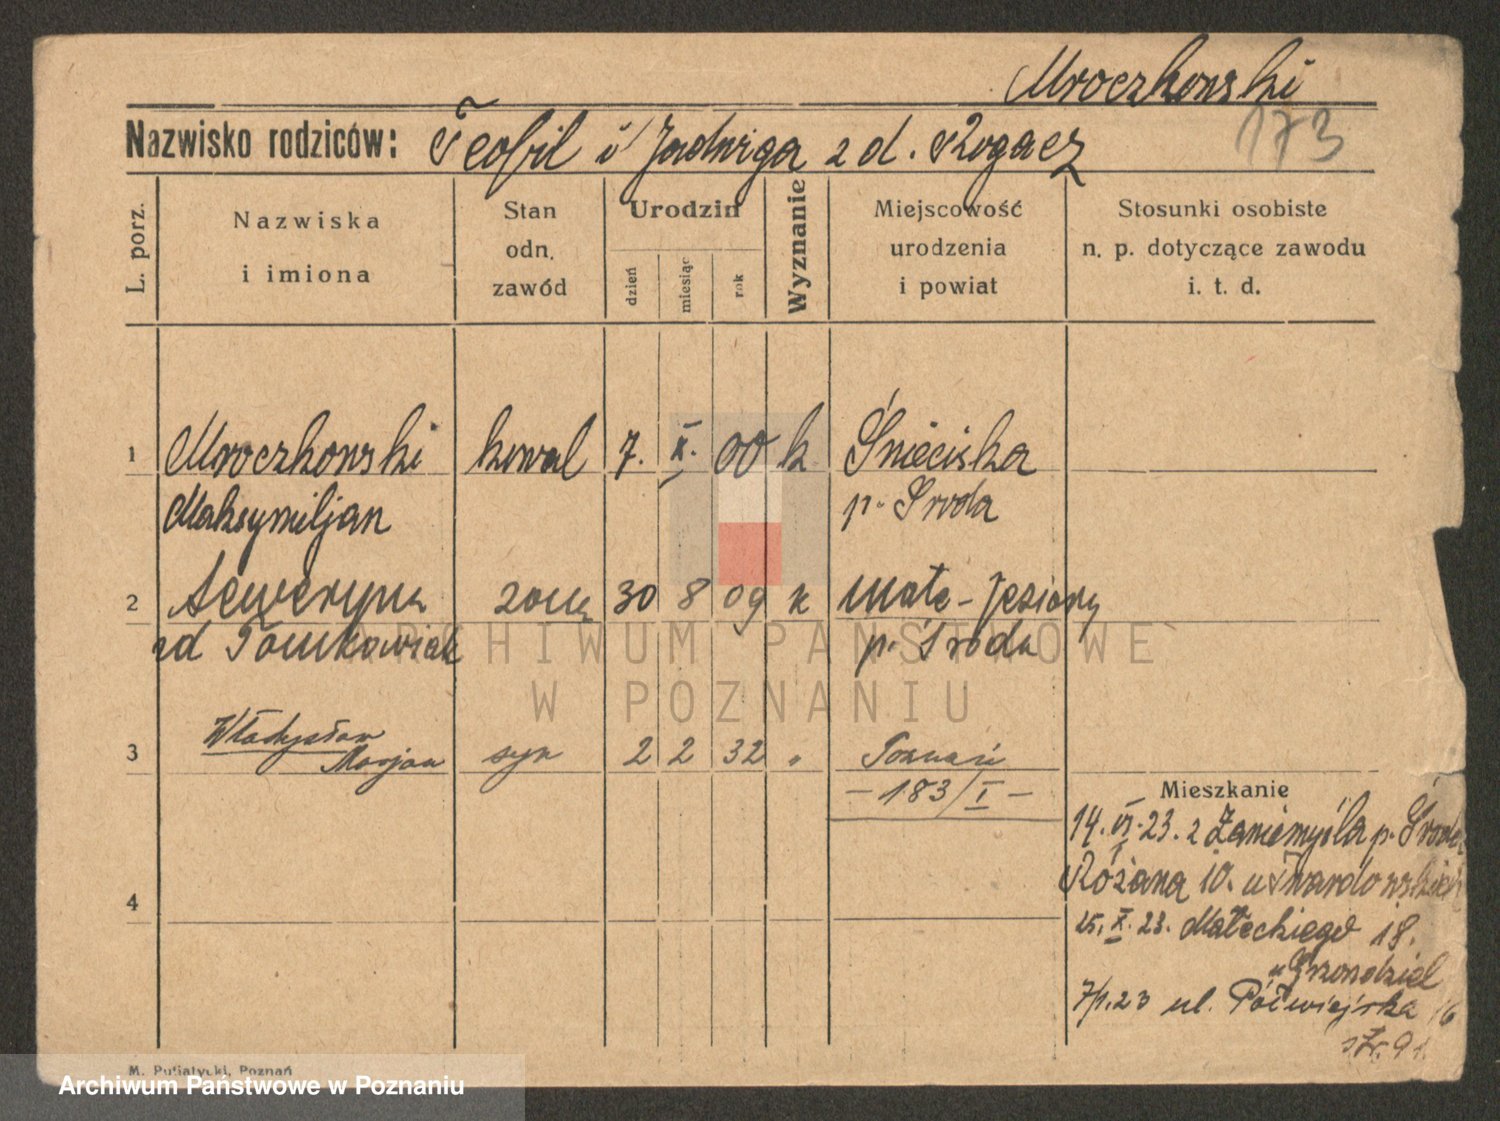 Mroczkowski
173
Nazwisko rodziców: Teofil i Jadwiga z d. Rogacz
L. porz.
Nazwiska
i imiona
Stan
odn.
zawód
Urodzin
dzień
miesiąc
rok
Wyznanie
Miejscowość
urodzenia
i powiat
Stosunki osobiste
n. p. dotyczące zawodu
i. t. d.
1 Mroczkowski kowal 7. X. 00 k Śnieciska
Maksymiljan p. Środa
2 Seweryna żona 30 8 09 k Małe-Jeziory
zd Tomkowiak p. Środa
ARCHIWUM PAŃSTWOWE
W POZNANIU
3 Władysław syn 2 2 32 " Poznań
Marjan
- 183/I -
4
Mieszkanie
14. VI. 23. z Zaniemyśla p. Środa
Różana 10. u Twardowskich
25. X. 23. Małeckiego 18.
u Grzondziel
7/1.23 ul. Półwiejska 16
M. Putiatycki, Poznań
Archiwum Państwowe w Poznaniu